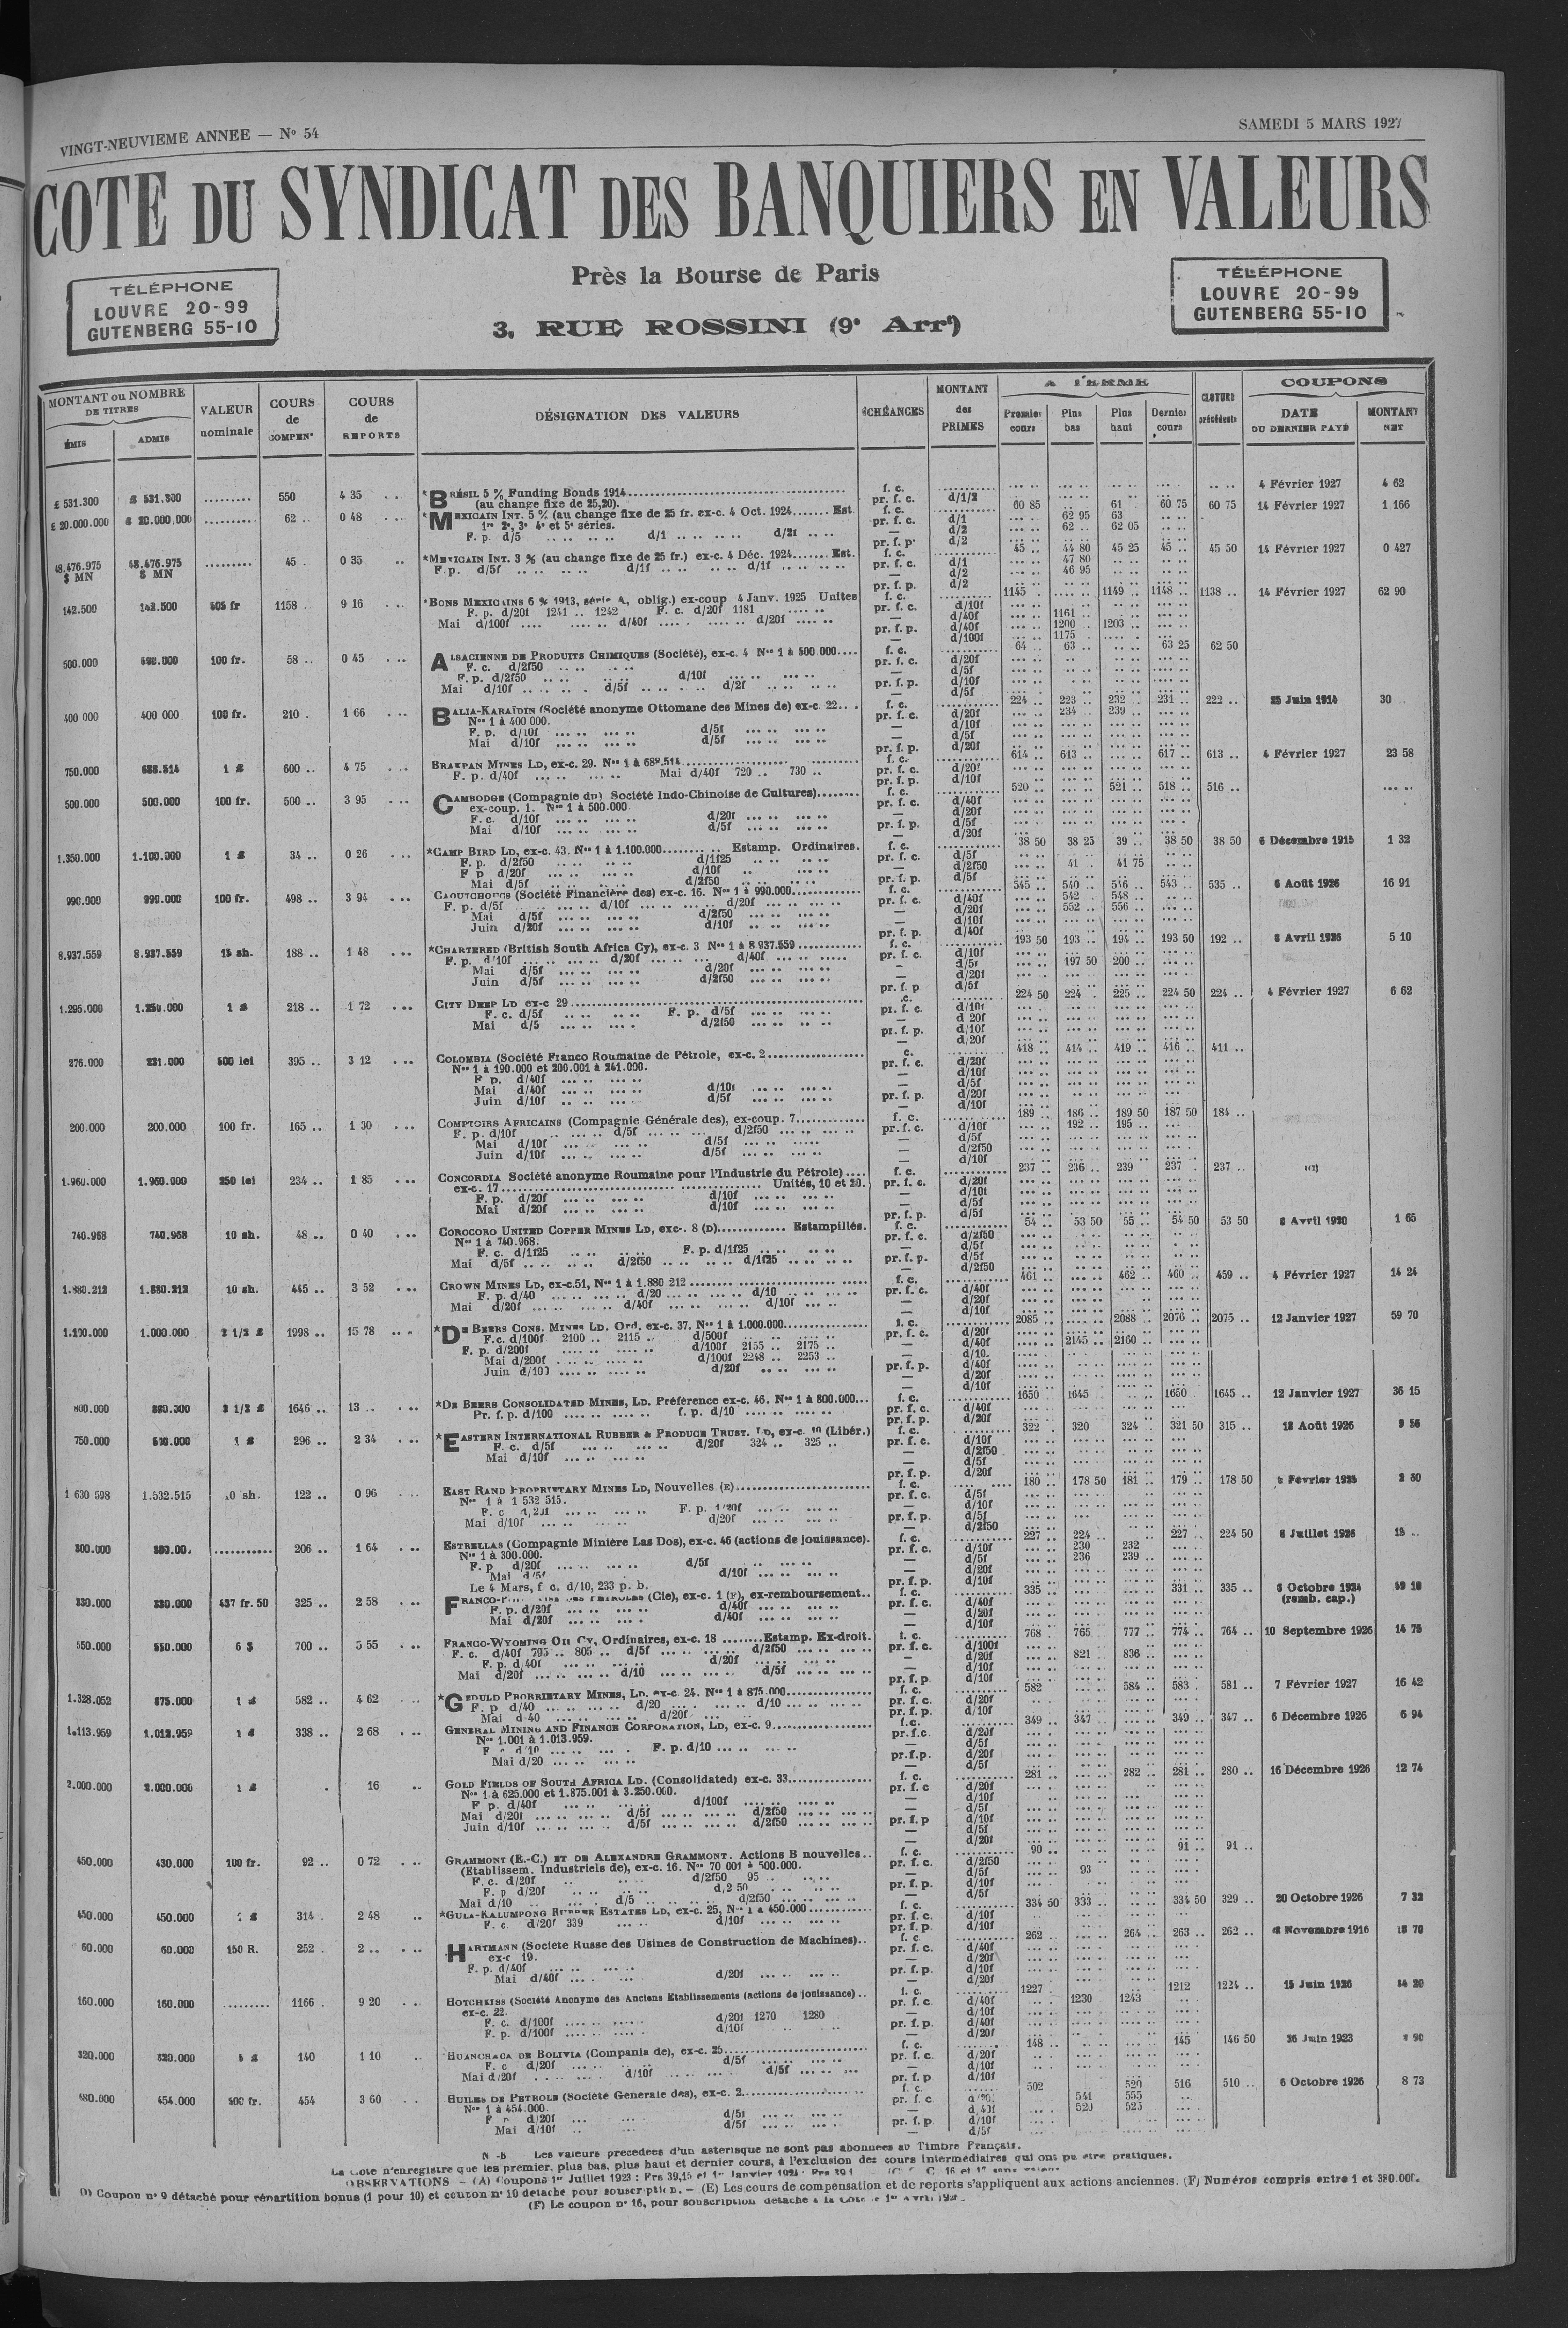 VINGT-NEUVIEME ANNEE — No 54
SAMEDI 5 MARS 1927
COTE DU SYNDICAT DES BANQUIERS EN VALEURS
Près la Bourse de Paris
3, RUE ROSSINI (9e Arrt)
TÉLÉPHONE
LOUVRE 20-99
GUTENBERG 55-10
TÉLÉPHONE
LOUVRE 20-99
GUTENBERG 55-10
MONTANT ou NOMBRE DE TITRES
ÉMIS
ADMIS
VALEUR nominale
COURS de COMPENn
COURS de REPORTS
DÉSIGNATION DES VALEURS
ÉCHÉANCES
MONTANT des PRIMES
A TERME
Premier cours
Plus bas
Plus haut
Dernier cours
CLOTURE précédente
COUPONS
DATE DU DERNIER PAYÉ
MONTANT NET
£ 531.300 £ 531.300 ......... 550 4 35 *BRÉSIL 5 % Funding Bonds 1914 f. c. 4 Février 1927 4 62
(au change fixe de 25,20). pr. f. c. d/1/2
£ 20.000.000 £ 20.000.000 ......... 62 .. 0 48 *MEXICAIN INT. 5 % (au change fixe de 25 fr. ex-c. 4 Oct. 1924....... Est. f. c. 60 85 .. 61 60 75 60 75 14 Février 1927 1 166
1re 2e, 3e 4e et 5e séries. pr. f. c. d/1 62 95 63
F. p. d/5 d/1 d/2f — d/2 62 .. 62 05
pr. f. p. d/2
48.476.975 $ MN 48.476.975 $ MN ......... 45 . 0 35 *MEXICAIN INT. 3 % (au change fixe de 25 fr.) ex-c. 4 Déc. 1924....... Est. f. c. 45 .. 44 80 45 25 45 .. 45 50 14 Février 1927 0 427
F. p. d/5f d/1f d/1f pr. f. c. d/1 47 80
— d/2 46 95
pr. f. p. d/2
142.500 142.500 505 fr 1158 . 9 16 *BONS MEXICAINS 6 % 1913, série A, oblig.) ex-coup 4 Janv. 1925 Unités f. c. 1145 . 1149 .. 1148 .. 1138 .. 14 Février 1927 62 90
F. p. d/20f 1241 .. 1242 F. c. d/20f 1181 pr. f. c. d/10f
Mai d/100f d/40f d/20f — d/40f 1161
pr. f. p. d/40f 1200 . 1203 ..
— d/100f 1175
500.000 500.000 100 fr. 58 .. 0 45 ALSACIENNE DE PRODUITS CHIMIQUES (Société), ex-c. 4 Nos 1 à 500.000.... f. c. 64 .. 63 .. 63 25 62 50
F. c. d/2f50 pr. f. c. d/20f
F. p. d/2f50 d/10f — d/5f
Mai d/10f d/5f d/2f pr. f. p. d/10f
— d/5f
400 000 400 000 100 fr. 210 . 1 66 BALIA-KARAÏDIN (Société anonyme Ottomane des Mines de) ex-c. 22.... f. c. 224 .. 223 .. 232 .. 231 .. 222 .. 25 Juin 1914 30 ..
Nos 1 à 400 000. pr. f. c. d/20f 234 .. 239 ..
F. p. d/10f d/5f — d/10f
Mai d/10f d/5f — d/5f
pr. f. p. d/20f
750.000 688.514 1 £ 600 .. 4 75 BRAKPAN MINES LD, ex-c. 29. Nos 1 à 688.514 f. c. 614 .. 613 .. 617 .. 613 .. 4 Février 1927 23 58
F. p. d/40f Mai d/40f 720 .. 730 .. pr. f. c. d/20f
pr. f. p. d/10f
500.000 500.000 100 fr. 500 .. 3 95 CAMBODGE (Compagnie du) Société Indo-Chinoise de Cultures) f. c. 520 .. 521 .. 518 .. 516 ..
ex-coup. 1. Nos 1 à 500.000 pr. f. c. d/40f
F. c. d/10f d/20f — d/20f
Mai d/10f d/5f pr. f. p. d/5f
— d/20f
1.350.000 1.100.000 1 £ 34 .. 0 26 *CAMP BIRD LD, ex-c. 43. Nos 1 à 1.100.000.......... Estamp. Ordinaires. f. c. 38 50 38 25 39 .. 38 50 38 50 6 Décembre 1915 1 32
F. p. d/2f50 d/1f25 pr. f. c. d/5f
F p d/20f d/10f — d/2f50 41 . 41 75
Mai d/5f d/2f50 pr. f. p. d/5f
990.000 990.000 100 fr. 498 .. 3 94 CAOUTCHOUCS (Société Financière des) ex-c. 16. Nos 1 à 990.000 f. c. 545 .. 540 .. 546 .. 543 .. 535 .. 6 Août 1926 16 91
F. p. d/5f d/10f d/20f pr. f. c. d/40f 542 .. 548 ..
Mai d/5f d/2f50 — d/20f 552 .. 556 ..
Juin d/20f d/10f — d/10f
pr. f. p. d/40f
8.937.559 8.937.559 15 sh. 188 .. 1 48 *CHARTERED (British South Africa Cy), ex-c. 3 Nos 1 à 8 937.559 f. c. 193 50 193 .. 194 .. 193 50 192 .. 8 Avril 1926 5 10
F. p. d/10f d/20f d/40f pr. f. c. d/10f
Mai d/5f d/20f — d/5f 197 50 200 ..
Juin d/5f d/2f50 — d/20f
pr. f. p d/5f
1.295.000 1.250.000 1 £ 218 .. 1 72 CITY DEEP LD ex-c 29 f.c. 224 50 224 . 225 .. 224 50 224 .. 4 Février 1927 6 62
F. c. d/5f F. p. d/5f pr. f. c. d/10f
Mai d/5 d/2f50 — d 20f
pr. f. p. d/10f
— d/20f
276.000 231.000 500 lei 395 .. 3 12 COLOMBIA (Société Franco Roumaine de Pétrole, ex-c. 2 c. 418 .. 414 .. 419 .. 416 .. 411 ..
Nos 1 à 190.000 et 200.001 à 241.000. pr. f. c. d/20f
F p. d/40f — d/10f
Mai d/40f d/10f — d/5f
Juin d/10f d/5f pr. f. p. d/20f
— d/10f
200.000 200.000 100 fr. 165 .. 1 30 COMPTOIRS AFRICAINS (Compagnie Générale des), ex-coup. 7 f. c. 189 .. 186 .. 189 50 187 50 184 ..
F. p. d/10f d/5f d/2f50 pr. f. c. d/10f 192 .. 195 ..
Mai d/10f d/5f — d/5f
Juin d/10f d/5f — d/2f50
— d/10f
1.960.000 1.960.000 250 lei 234 .. 1 85 CONCORDIA Société anonyme Roumaine pour l'Industrie du Pétrole) f. c. 237 .. 236 .. 239 237 . 237 ..
ex-c. 17 Unités, 10 et 20. pr. f. c. d/20f
F. p. d/20f d/10f — d/10f
Mai d/20f d/10f — d/5f
pr. f. p. d/5f
740.968 740.968 10 sh. 48 .. 0 40 COROCORO UNITED COPPER MINES LD, ex-. 8 (D)............. Estampillés. f. c. 54 .. 53 50 55 .. 54 50 53 50 8 Avril 1920 1 65
Nos 1 à 740.968. pr. f. c. d/2f50
F. c. d/1f25 F. p. d/1f25 — d/5f
Mai d/5f d/2f50 d/1f25 pr. f. p. d/5f
— d/2f50
1.880.212 1.880.212 10 sh. 445 .. 3 52 CROWN MINES LD, ex-c.51, Nos 1 à 1.880 212 f. c. 461 .. 462 .. 460 .. 459 .. 4 Février 1927 14 24
F. p. d/40 d/20 d/10 pr. f. c. d/40f
Mai d/20f d/40f d/10f — d/20f
— d/10f
1.190.000 1.000.000 2 1/2 £ 1998 .. 15 78 *DE BEERS CONS. MINES LD. Ord. ex-c. 37. Nos 1 à 1.000.000 f. c. 2085 .. 2088 .. 2076 .. 2075 .. 12 Janvier 1927 59 70
F.c. d/100f 2100 .. 2115 .. d/500f pr. f. c. d/20f
F. p. d/200f d/100f 2155 .. 2175 .. — d/40f 2145 .. 2160 ..
Mai d/200f d/100f 2248 .. 2253 .. — d/10.
Juin d/100 d/20f pr. f. p. d/40f
— d/20f
— d/10f
800.000 800.000 2 1/2 £ 1646 .. 13 .. *DE BEERS CONSOLIDATED MINES, LD. Préférence ex-c. 46. Nos 1 à 800.000... f. c. 1650 1645 1650 1645 .. 12 Janvier 1927 36 15
Pr. f. p. d/100 f. p. d/10 pr. f. c. d/40f
pr. f. p. d/20f
750.000 1 £ 296 .. 2 34 *EASTERN INTERNATIONAL RUBBER & PRODUCE TRUST. LD, ex-c. 10 (Libér.) f. c. 322 . 320 324 .. 321 50 315 .. 18 Août 1926 9 56
F. c. d/5f d/20f 324 .. 325 .. pr. f. c. d/10f
Mai d/10f — d/2f50
— d/5f
pr. f. p. d/20f
1 630 598 1.532.515 10 sh. 122 .. 0 96 EAST RAND PROPRIETARY MINES LD, Nouvelles (E) f. c. 180 .. 178 50 181 .. 179 .. 178 50
Nos 1 à 1 532 515. pr. f. c. d/5f
F. c d/20f F. p. d/20f — d/10f
Mai d/10f d/20f pr. f. p. d/5f
— d/2f50
300.000 ........... 206 .. 1 64 ESTRELLAS (Compagnie Minière Las Dos), ex-c. 46 (actions de jouissance). f. c. 227 .. 224 .. 227 .. 224 50 6 Juillet 1926 15 ..
Nos 1 à 300.000. pr. f. c. d/10f 230 232
F. p d/20f d/5f — d/5f 236 239 ..
Mai d/5f d/10f — d/20f
Le 4 Mars, f c, d/10, 233 p. b. pr. f. p. d/10f
330.000 330.000 437 fr. 50 325 .. 2 58 (Cie), ex-c. 1 (F), ex-remboursement.. f. c. 335 .. 331 .. 335 .. 6 Octobre 1924
F. p. d/20f d/40f pr. f. c. d/40f (remb. cap.)
Mai d/20f d/40f — d/20f
— d/10f
550.000 550.000 6 $ 700 .. 5 55 FRANCO-WYOMING OIL Cy, Ordinaires, ex-c. 18 ........Estamp. Ex-droit. f. c. 768 .. 765 777 .. 774 .. 764 .. 10 Septembre 1926 14 75
F. c. d/40f 795 .. 805 .. d/5f d/2f50 pr. f. c. d/100f
F. p. d/40f d/20f — d/20f 821 . 836 ..
Mai d/20f d/10 d/5f — d/10f
pr. f. p d/10f
1.328.052 875.000 1 £ 582 .. 4 62 *GEDULD PROPRIETARY MINES, LD, ex-c. 24. Nos 1 à 875.000 f. c. 582 584 .. 583 . 581 .. 7 Février 1927 16 42
F. p d/40 d/20 d/10 pr. f. c. d/20f
Mai d 40 d/20f pr. f. p. d/10f
1.113.959 1.013.959 1 £ 338 .. 2 68 GENERAL MINING AND FINANCE CORPORATION, LD, ex-c. 9 f.c. 349 .. 347 .. 349 .. 347 .. 6 Décembre 1926 6 94
Nos 1.001 à 1.013.959. pr.f.c. d/20f
F. c. d/10 F. p. d/10 — d/5f
Mai d/20 pr.f.p. d/20f
— d/5f
2.000.000 2.000.000 1 £ 16 GOLD FIELDS OF SOUTH AFRICA LD. (Consolidated) ex-c. 33 f. c. 281 .. 282 .. 281 .. 280 .. 16 Décembre 1926 12 74
Nos 1 à 625.000 et 1.875.001 à 3.250.000. pr. f. c d/20f
F p. d/40f d/100f — d/10f
Mai d/20f d/5f d/2f50 — d/5f
Juin d/10f d/5f d/2f50 pr. f. p d/10f
— d/5f
— d/20f
450.000 430.000 100 fr. 92 .. 0 72 GRAMMONT (E.-C.) ET DE ALEXANDRE GRAMMONT. Actions B nouvelles.. f. c. 90 .. 91 .. 91 ..
(Etablissem. Industriels de), ex-c. 16. Nos 70 001 à 500.000. pr. f. c. d/2f50
F. c. d/20f d/2f50 95 . — d/5f 93
F. p d/20f d,2 50 pr. f. p. d/10f
Mai d/10 d/5 d/2f50 — d/5f
450.000 450.000 £ 314 . 2 48 *GULA-KALUMPONG RUBBER ESTATES LD, ex-c. 25, Nos 1 à 450.000 f. c. 334 50 333 .. 334 50 329 .. 20 Octobre 1926 7 32
F. c. d/20f 339 d/10f pr. f. c. d/10f
pr. f. p. d/10f
60.000 60.000 150 R. 252 . 2 .. HARTMANN (Société Russe des Usines de Construction de Machines).. f. c 262 .. 264 .. 263 .. 262 .. Novembre 1916 18 70
ex-c 19. pr. f. c. d/40f
F. p. d/40f — d/20f
Mai d/40f d/20f pr. f. p. d/10f
— d/20f
160.000 160.000 ......... 1166 . 9 20 HOTCHKISS (Société Anonyme des Anciens Etablissements (actions de jouissance).. f. c. 1227 . 1212 1224 .. 15 Juin 1926
ex-c. 22. pr. f. c. d/40f 1230 1243
F. c. d/100f d/20f 1270 1280 — d/10f
F. p. d/100f d/10f pr. f. p. d/40f
— d/20f
320.000 320.000 £ 140 1 10 HUANCHACA DE BOLIVIA (Compania de), ex-c. 25 f. c. 148 .. 145 146 50 Juin 1923
F. c d/20f d/5f pr. f. c. d/20f
Mai d/20f d/10f d/5f — d/10f
pr. f. p d/10f
480.000 454.000 500 fr. 454 3 60 HUILES DE PETROLE (Société Générale des), ex-c. 2 f. c. 502 520 516 510 .. 6 Octobre 1926 8 73
Nos 1 à 454.000. pr. f. c d/20f 541 555
F p d/20f d/5f — d,40f 520 525
Mai d/10f d/5f pr. f. p. d/10f
— d/5f
N -B Les valeurs précédées d'un astérisque ne sont pas abonnées au Timbre Français.
La Cote n'enregistre que les premier, plus bas, plus haut et dernier cours, à l'exclusion des cours intermédiaires qui ont pu être pratiqués.
OBSERVATIONS — (A) Coupons 1er Juillet 1923 : Frs 39,15 et 1er Janvier 1924
(D) Coupon no 9 détaché pour répartition bonus (1 pour 10) et coupon no 10 détaché pour souscription. — (E) Les cours de compensation et de reports s'appliquent aux actions anciennes. (F) Numéros compris entre 1 et 380.000.
(F) Le coupon no 16, pour souscription détaché à la Cote le 1er Avril